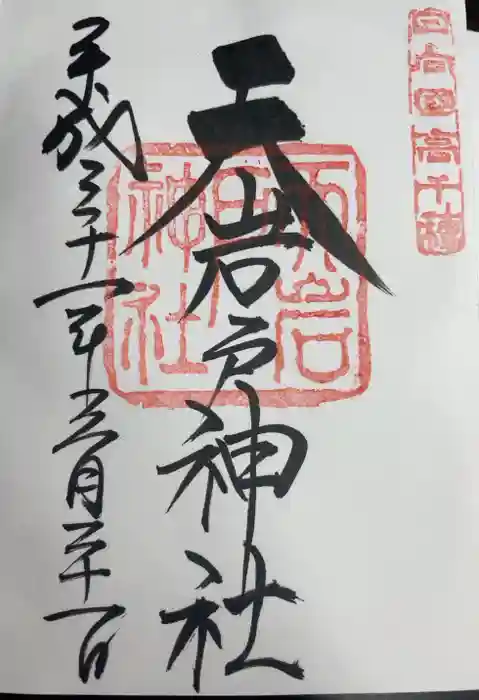 日向國高千穂
天岩戸神社
天岩戸神社
平成三十一年三月二十一日